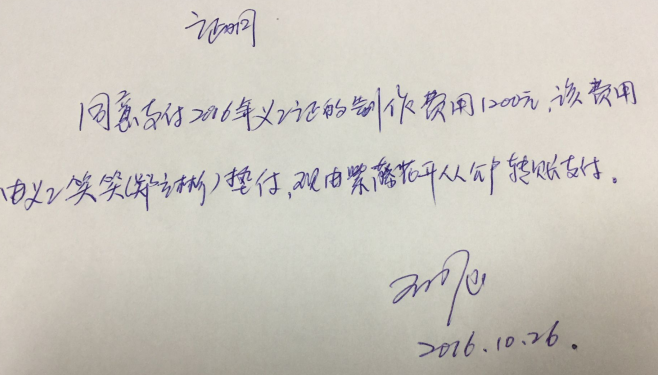 证明
同意支付2016年义工证的制作费用1200元，该费用
由义工笑笑(郑立彬)垫付，现由紫藤花开从公户转账支付。
2016.10.26.